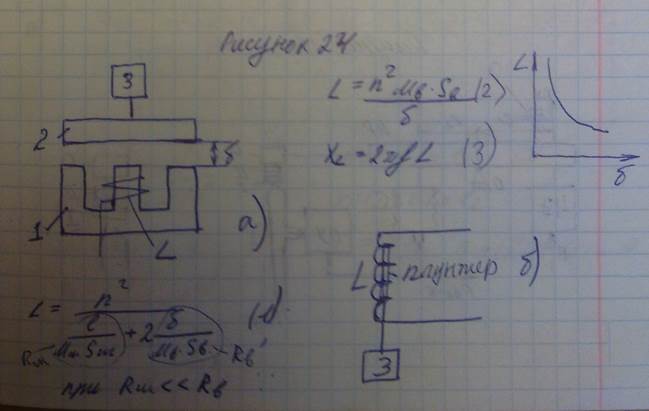 Рисунок 24
3
2
δ
1
L
а)
L = n² μв·Sв / δ (2)
X_L = 2πfL (3)
L
δ
L плунжер б)
3
L = n² / (l / μм Sм + 2 δ / μв·Sв) (1)
Rм
Rв
при Rм << Rв